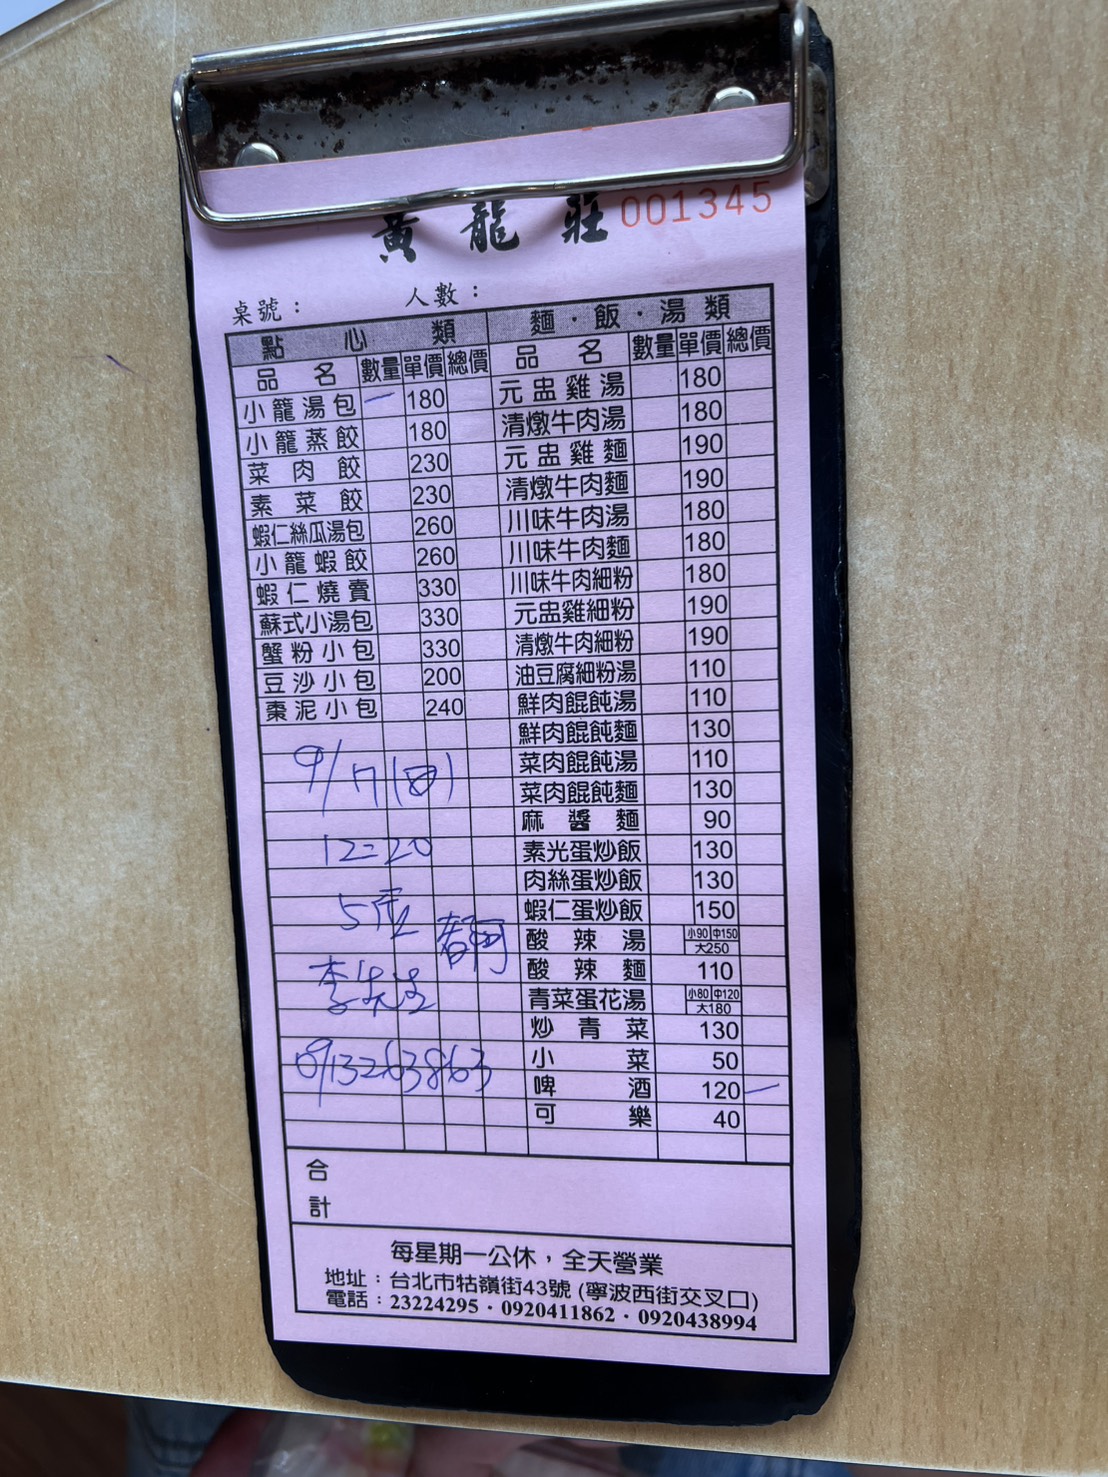 黃龍莊 001345
桌號： 人數：
點心類 麵．飯．湯類
品名 數量 單價 總價 品名 數量 單價 總價
小籠湯包 一 180 元盅雞湯 180
小籠蒸餃 180 清燉牛肉湯 180
菜肉餃 230 元盅雞麵 190
素菜餃 230 清燉牛肉麵 190
蝦仁絲瓜湯包 260 川味牛肉湯 180
小籠蝦餃 260 川味牛肉麵 180
蝦仁燒賣 330 川味牛肉細粉 180
蘇式小湯包 330 元盅雞細粉 190
蟹粉小包 330 清燉牛肉細粉 190
豆沙小包 200 油豆腐細粉湯 110
棗泥小包 240 鮮肉餛飩湯 110
鮮肉餛飩麵 130
9/17(日) 菜肉餛飩湯 110
菜肉餛飩麵 130
麻醬麵 90
12:20 素光蛋炒飯 130
肉絲蛋炒飯 130
5位 蝦仁蛋炒飯 150
酸辣湯 小90 中150 大250
李先生 酸辣麵 110
青菜蛋花湯 小80 中120 大180
炒青菜 130
0913263863 小菜 50
啤酒 120 一
可樂 40
合計
每星期一公休，全天營業
地址：台北市牯嶺街43號 (寧波西街交叉口)
電話：23224295．0920411862．0920438994